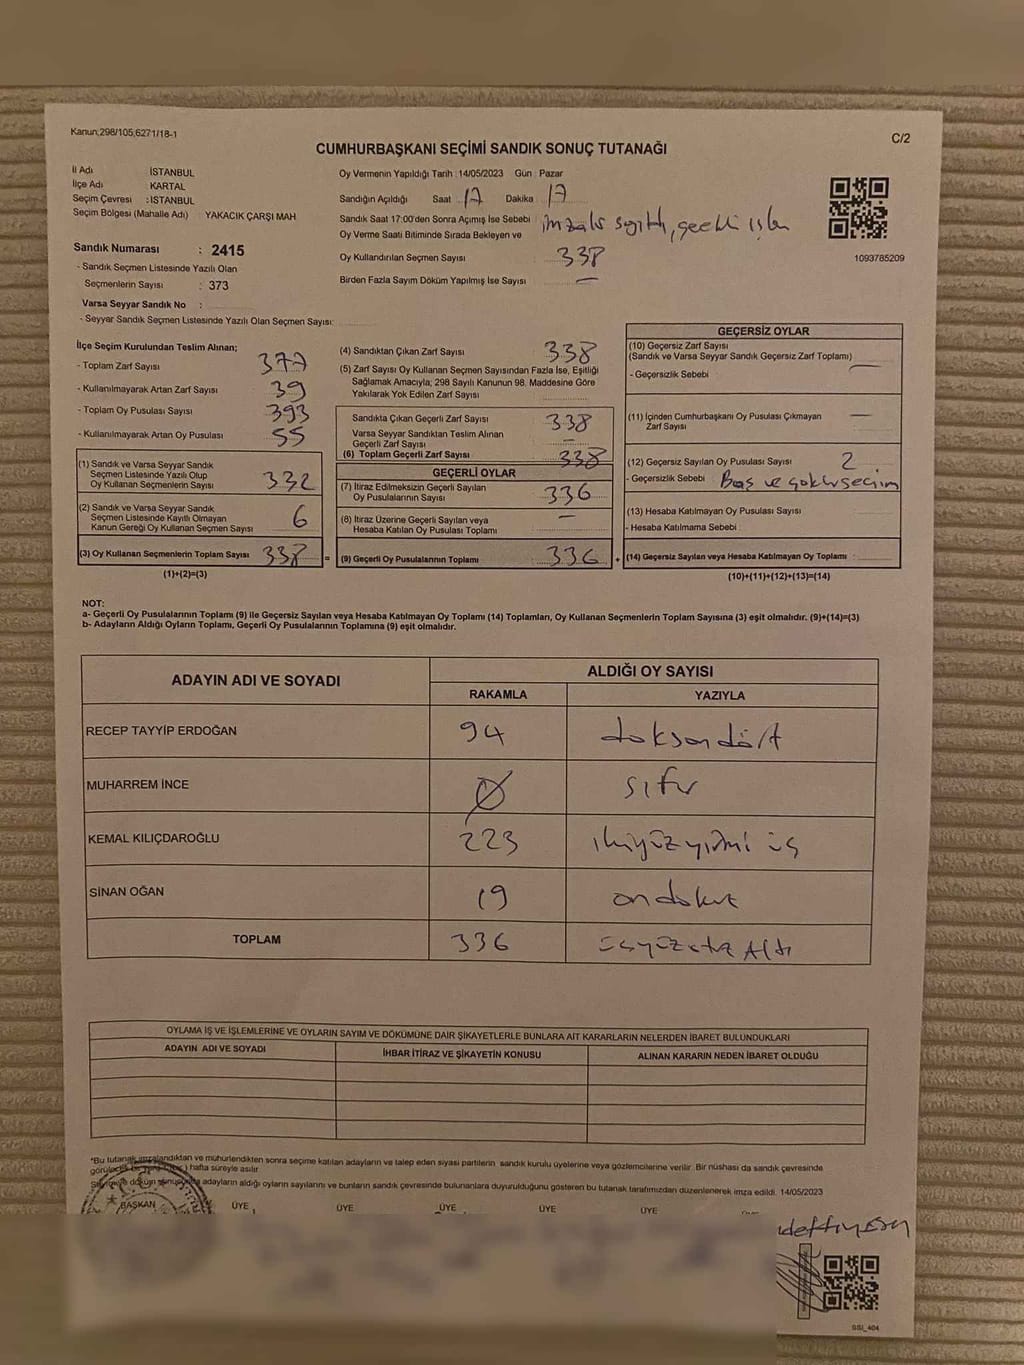 Kanun;298/105,6271/18-1
C/2
CUMHURBAŞKANI SEÇİMİ SANDIK SONUÇ TUTANAĞI
İl Adı : İSTANBUL
İlçe Adı : KARTAL
Seçim Çevresi : İSTANBUL
Seçim Bölgesi (Mahalle Adı) : YAKACIK ÇARŞI MAH
Sandık Numarası : 2415
- Sandık Seçmen Listesinde Yazılı Olan
Seçmenlerin Sayısı : 373
Varsa Seyyar Sandık No :
- Seyyar Sandık Seçmen Listesinde Yazılı Olan Seçmen Sayısı:
Oy Vermenin Yapıldığı Tarih : 14/05/2023 Gün : Pazar
Sandığın Açıldığı Saat 17 Dakika 17
Sandık Saat 17:00'den Sonra Açımış İse Sebebi imzalar sayıldı, gecikti
Oy Verme Saati Bitiminde Sırada Bekleyen ve
Oy Kullandırılan Seçmen Sayısı 338
Birden Fazla Sayım Döküm Yapılmış İse Sayısı —
1093785209
İlçe Seçim Kurulundan Teslim Alınan;
- Toplam Zarf Sayısı 377
- Kullanılmayarak Artan Zarf Sayısı 39
- Toplam Oy Pusulası Sayısı 393
- Kullanılmayarak Artan Oy Pusulası 55
(1) Sandık ve Varsa Seyyar Sandık
Seçmen Listesinde Yazılı Olup
Oy Kullanan Seçmenlerin Sayısı 332
(2) Sandık ve Varsa Seyyar Sandık
Seçmen Listesinde Kayıtlı Olmayan
Kanun Gereği Oy Kullanan Seçmen Sayısı 6
(3) Oy Kullanan Seçmenlerin Toplam Sayısı 338 =
(1)+(2)=(3)
(4) Sandıktan Çıkan Zarf Sayısı 338
(5) Zarf Sayısı Oy Kullanan Seçmen Sayısından Fazla İse, Eşitliği
Sağlamak Amacıyla; 298 Sayılı Kanunun 98. Maddesine Göre
Yakılarak Yok Edilen Zarf Sayısı
Sandıkta Çıkan Geçerli Zarf Sayısı 338
Varsa Seyyar Sandıktan Teslim Alınan
Geçerli Zarf Sayısı —
(6) Toplam Geçerli Zarf Sayısı 338
GEÇERLİ OYLAR
(7) İtiraz Edilmeksizin Geçerli Sayılan
Oy Pusulalarının Sayısı 336
(8) İtiraz Üzerine Geçerli Sayılan veya
Hesaba Katılan Oy Pusulası Toplamı —
(9) Geçerli Oy Pusulalarının Toplamı 336 +
GEÇERSİZ OYLAR
(10) Geçersiz Zarf Sayısı
(Sandık ve Varsa Seyyar Sandık Geçersiz Zarf Toplamı) —
- Geçersizlik Sebebi
(11) İçinden Cumhurbaşkanı Oy Pusulası Çıkmayan
Zarf Sayısı —
(12) Geçersiz Sayılan Oy Pusulası Sayısı 2
- Geçersizlik Sebebi Boş ve çoklu seçim
(13) Hesaba Katılmayan Oy Pusulası Sayısı
- Hesaba Katılmama Sebebi
(14) Geçersiz Sayılan veya Hesaba Katılmayan Oy Toplamı
(10)+(11)+(12)+(13)=(14)
NOT:
a- Geçerli Oy Pusulalarının Toplamı (9) ile Geçersiz Sayılan veya Hesaba Katılmayan Oy Toplamı (14) Toplamları, Oy Kullanan Seçmenlerin Toplam Sayısına (3) eşit olmalıdır. (9)+(14)=(3)
b- Adayların Aldığı Oyların Toplamı, Geçerli Oy Pusulalarının Toplamına (9) eşit olmalıdır.
ADAYIN ADI VE SOYADI ALDIĞI OY SAYISI
RAKAMLA YAZIYLA
RECEP TAYYİP ERDOĞAN 94 doksandört
MUHARREM İNCE 0 sıfır
KEMAL KILIÇDAROĞLU 223 ikiyüzyirmi üç
SİNAN OĞAN 19 ondokuz
TOPLAM 336 üçyüzotuz Altı
OYLAMA İŞ VE İŞLEMLERİNE VE OYLARIN SAYIM VE DÖKÜMÜNE DAİR ŞİKAYETLERLE BUNLARA AİT KARARLARIN NELERDEN İBARET BULUNDUKLARI
ADAYIN ADI VE SOYADI İHBAR İTİRAZ VE ŞİKAYETİN KONUSU ALINAN KARARIN NEDEN İBARET OLDUĞU
*Bu tutanak imzalandıktan ve mühürlendikten sonra seçime katılan adayların ve talep eden siyasi partilerin sandık kurulu üyelerine veya gözlemcilerine verilir. Bir nüshası da sandık çevresinde
hafta süreyle asılır.
adayların aldığı oyların sayılarını ve bunların sandık çevresinde bulunanlara duyurulduğunu gösteren bu tutanak tarafımızdan düzenlenerek imza edildi. 14/05/2023
BAŞKAN ÜYE ÜYE ÜYE ÜYE ÜYE
SSI_404